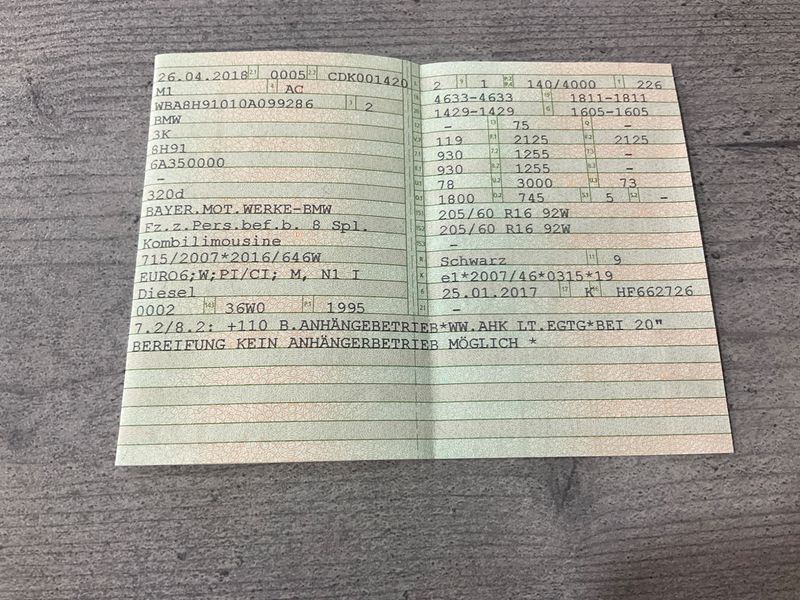 26.04.2018 2.1 0005 2.2 CDK001420
M1 4 AC
WBA8H91010A099286 3 2
BMW
3K
8H91
6A350000
–
320d
BAYER.MOT.WERKE-BMW
Fz.z.Pers.bef.b. 8 Spl.
Kombilimousine
715/2007*2016/646W
EURO6;W;PI/CI; M, N1 I
Diesel
0002 14.1 36W0 P.1 1995
L 2 9 1 P.2 P.4 140/4000 T 226
18 4633-4633 19 1811-1811
20 1429-1429 G 1605-1605
12 – 13 75 Q –
V.7 119 F.1 2125 F.2 2125
7.1 930 7.2 1255 7.3 –
8.1 930 8.2 1255 8.3 –
U.1 78 U.2 3000 U.3 73
O.1 1800 O.2 745 S.1 5 S.2 –
15.1 205/60 R16 92W
15.2 205/60 R16 92W
15.3 –
R Schwarz 11 9
K e1*2007/46*0315*19
6 25.01.2017 17 K 16 HF662726
21 –
7.2/8.2: +110 B.ANHÄNGEBETRIEB*WW.AHK LT.EGTG*BEI 20"
BEREIFUNG KEIN ANHÄNGERBETRIEB MÖGLICH *